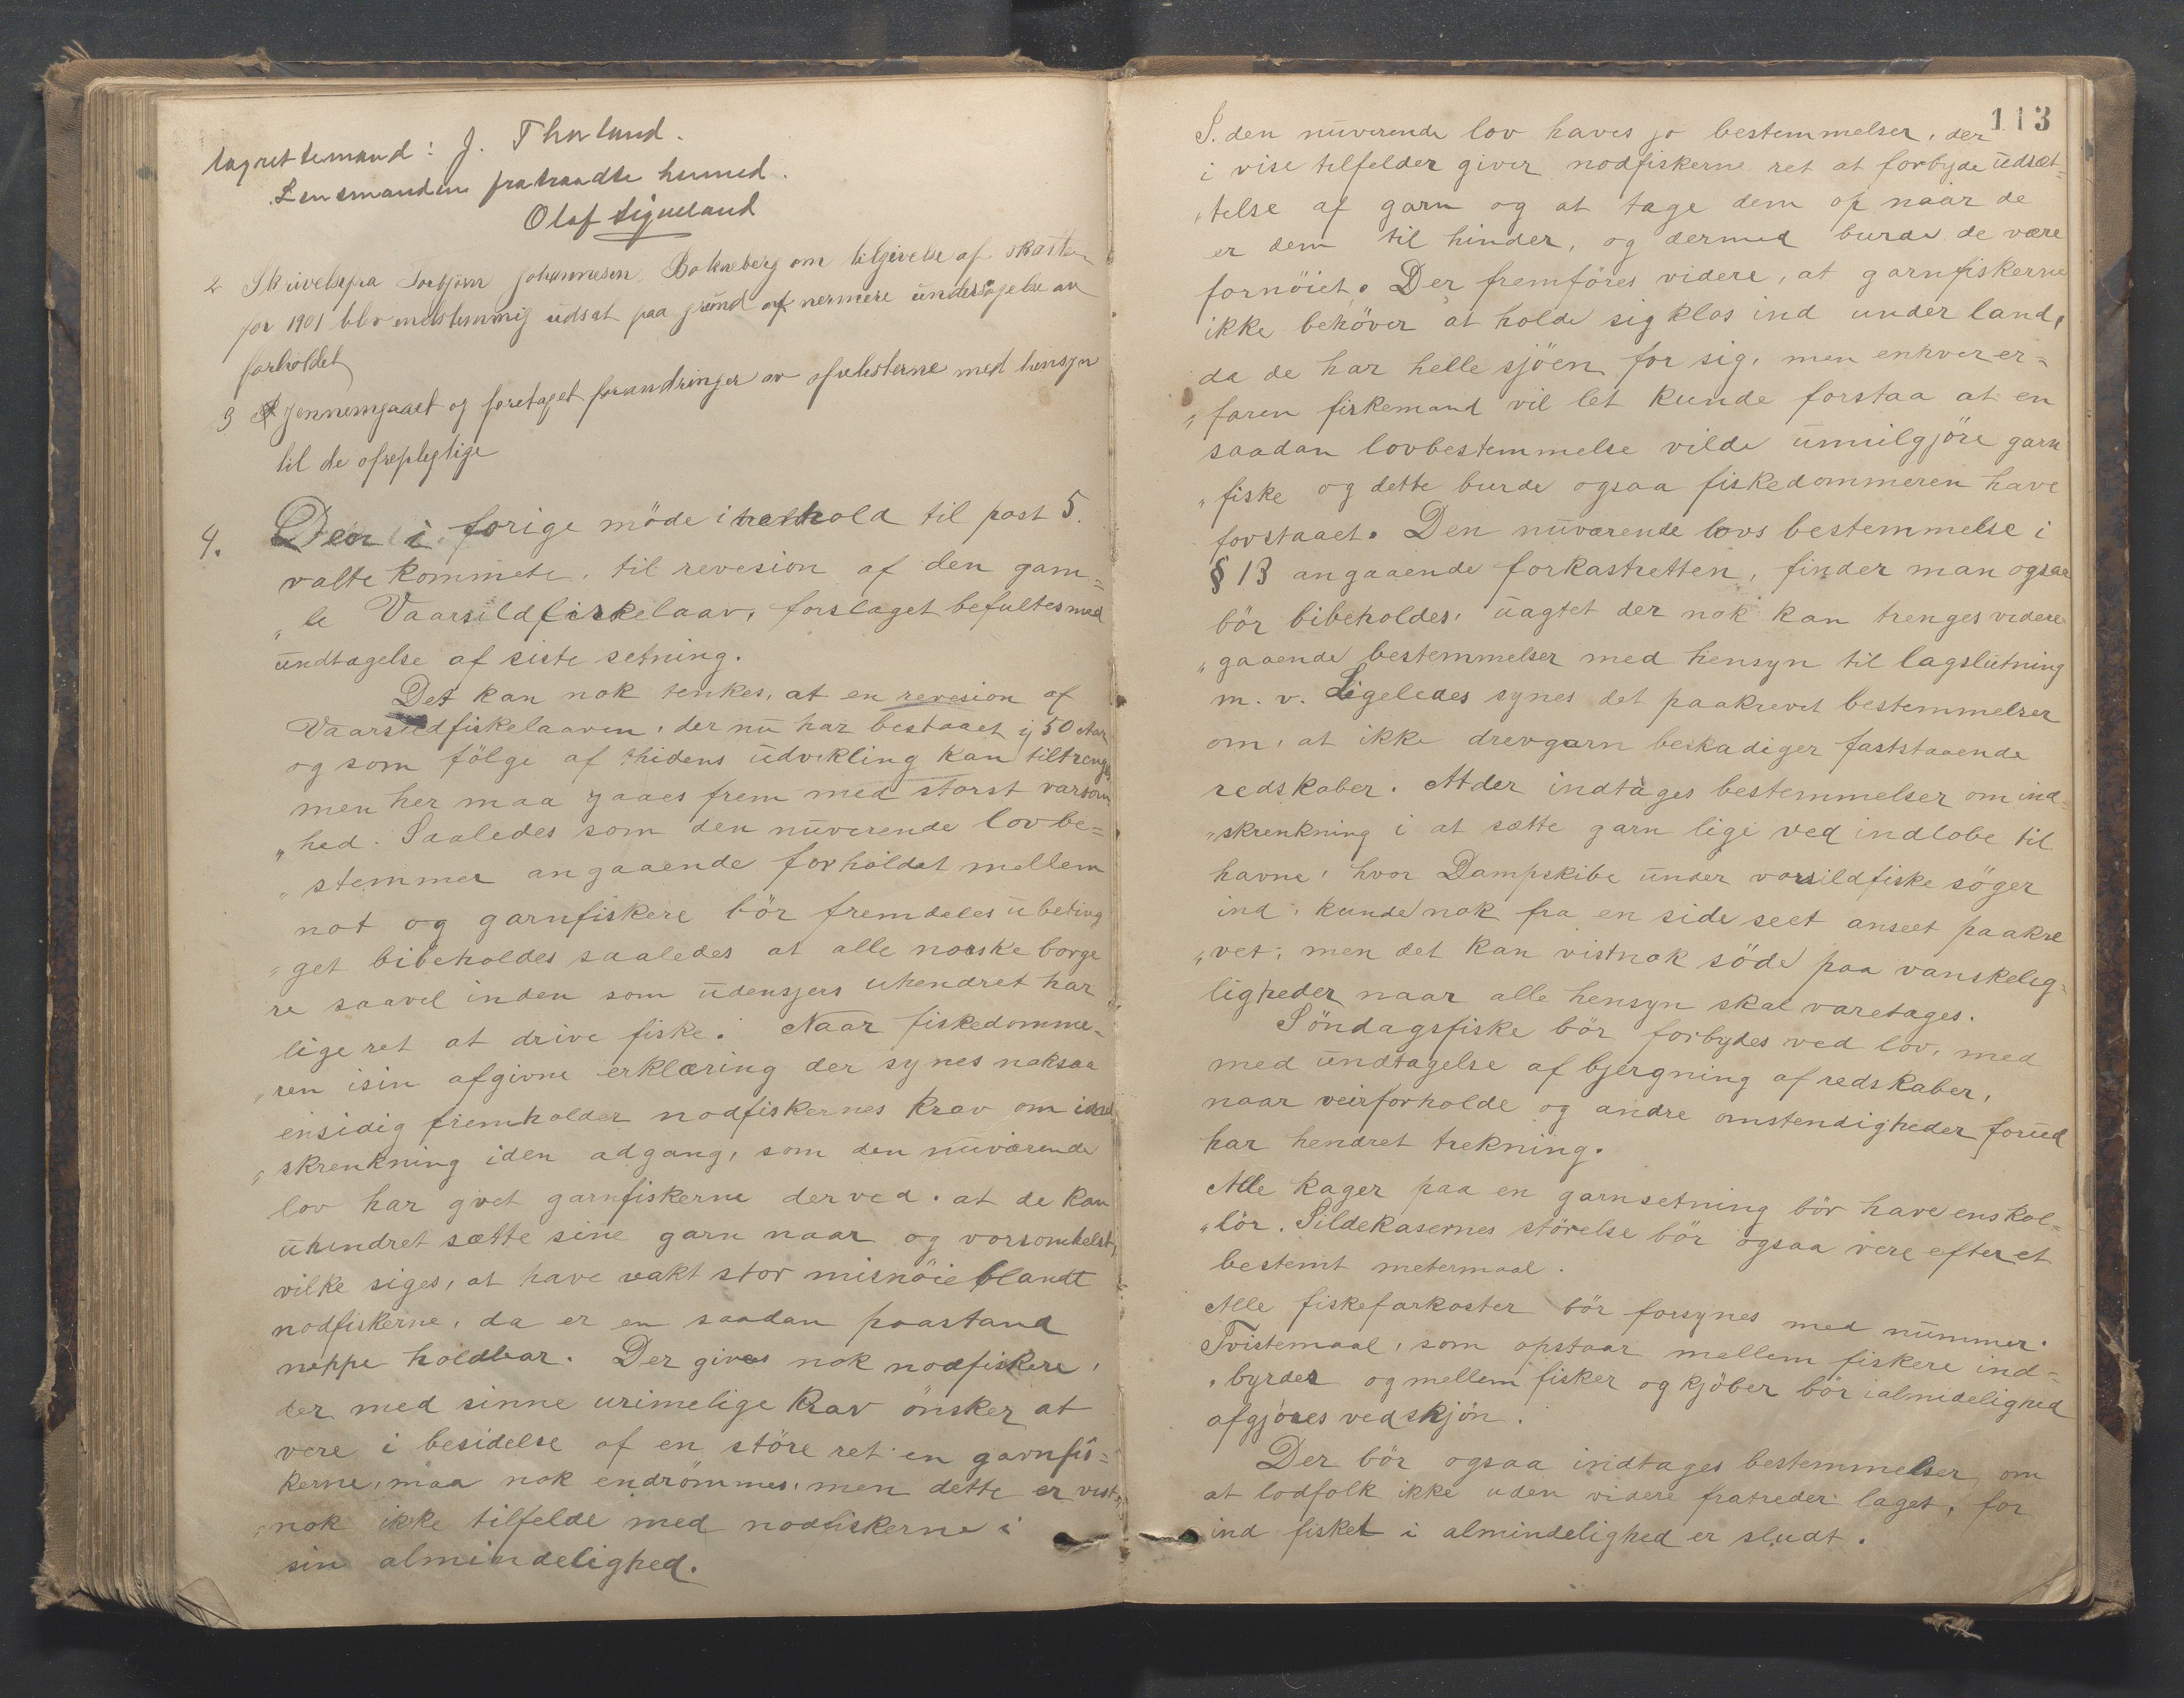 lagrettemand: J. Thorland.
Lensmanden fratraadte hermed.
Olaf Sigveland
2 Skrivelse fra Torbjörn Johannesen Bokneberg om eftergivelse af skatten
for 1901 blev enstemmig udsat paa grund af nermere undersögelse av
forholdet
3 Gjennemgaaet og foretaget forandringer av ofrelisterne med hensyn
til de ofrepligtige
4. Den i forige möde i henhold til post 5.
valte kommete, til revesion af den gam=
„le Vaarsildfiskelaav, forslaget befultes med
undtagelse af siste setning.
Det kan nok tenkes, at en revesion af
Vaarsildfiskelaaven, der nu har bestaaet i 50 Aar
og som fölge af thidens udvikling kan tiltrenges
men her maa gaaes frem med storst varsom
„hed. Saaledes som den nuverende lov be=
„stemmer angaaende forholdet mellem
not og garnfiskere bör fremdeles ubeting
„get bibeholdes saaledes at alle norske borge
re saavel inden som udensjers uhendret har
lige ret at drive fiske. Naar fiskedomme=
„ren isin afgivne erklæring der synes noksaa
ensidig fremholder nodfiskernes krav om ind
„skrenkning iden adgang, som den nuværende
lov har givet garnfiskerne derved. at de kan
uhindret sætte sine garn naar og vorsomhelst,
vilke siges, at have vakt stor misnöie blandt
nodfiskerne, da er en saadan paastand
neppe holdbar. Der gives nok nodfiskere,
der med sinne urimelige krav önsker at
vere i besidelse af en störe ret en garnfis=
kerne, maa nok endrömmes, men dette er vist
„nok ikke tilfelde med nodfiskerne i
sin almindelighed.
113
I. den nuverende lov haves jo bestemmelser, der
i vise tilfelder giver nodfiskerne ret at forbyde udsæt=
„telse af garn og at tage dem op naar de
er dem til hinder, og dermed burde de være
fornöiet. Der fremföres videre, at garnfiskerne
ikke behöver at holde sig klos ind under land,
da de har helle sjöen for sig, men enhver er=
„faren fiskemand vil let kunde forstaa at en
saadan lovbestemmelse vilde umulgjöre garn
„fiske og dette burde ogsaa fiskedommeren have
forstaaet. Den nuværende lovs bestemmelse i
§ 13 angaaende forkastretten, finder man ogsaa
bör bibeholdes, uagtet der nok kan trenges videre
„gaaende bestemmelser med hensyn til lagslutning
m. v. Ligeledes synes det paakrevet bestemmelser
om, at ikke drevgarn beskadiger faststaaende
redskaber. At der indtages bestemmelser om ind=
„skrenkning i at sætte garn lige ved indlobe til
havne, hvor Dampskibe under vorsildfiske söger
ind, kunde nok fra en side seet anseet paakre
„vet; men det kan vistnok söde paa vanskelig=
ligheder naar alle hensyn skal varetages.
Söndagsfiske bör forbydes ved lov, med
med undtagelse af bjergning af redskaber,
naar veirforholde og andre omstendigheder forud
har hendret trekning.
Alle kager paa en garnsetning bör have ens kol=
„lör. Sildekasernes störelse bör ogsaa vere efter et
bestemt metermaal.
Alle fiskefarkoster bör forsynes med nummer.
Tvistemaal, som opstaar mellem fiskere ind=
„byrdes og mellem fisker og kjöber bör ialmidelighed
afgjöres ved skjön.
Der bör ogsaa indtages bestemmelser om
at lodfolk ikke uden videre fratreder laget, for
ind fisket i almindelighed er sludt.